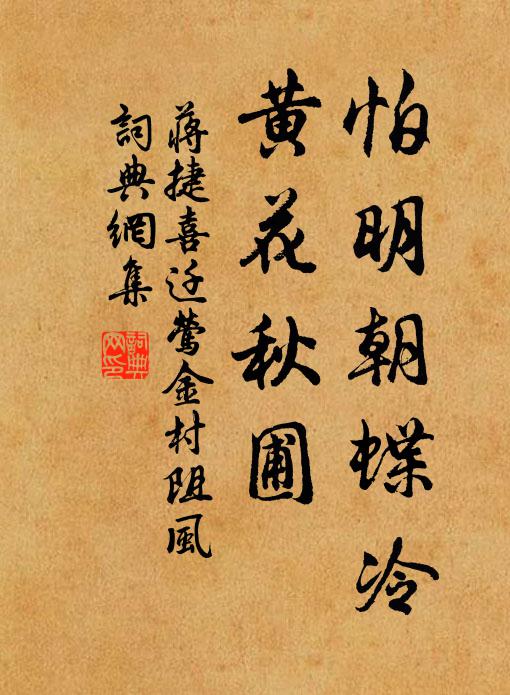 怕明朝蝶冷
黄花秋圃
蔣捷喜迁鶯金村阻風
詞典網集
詞典網印